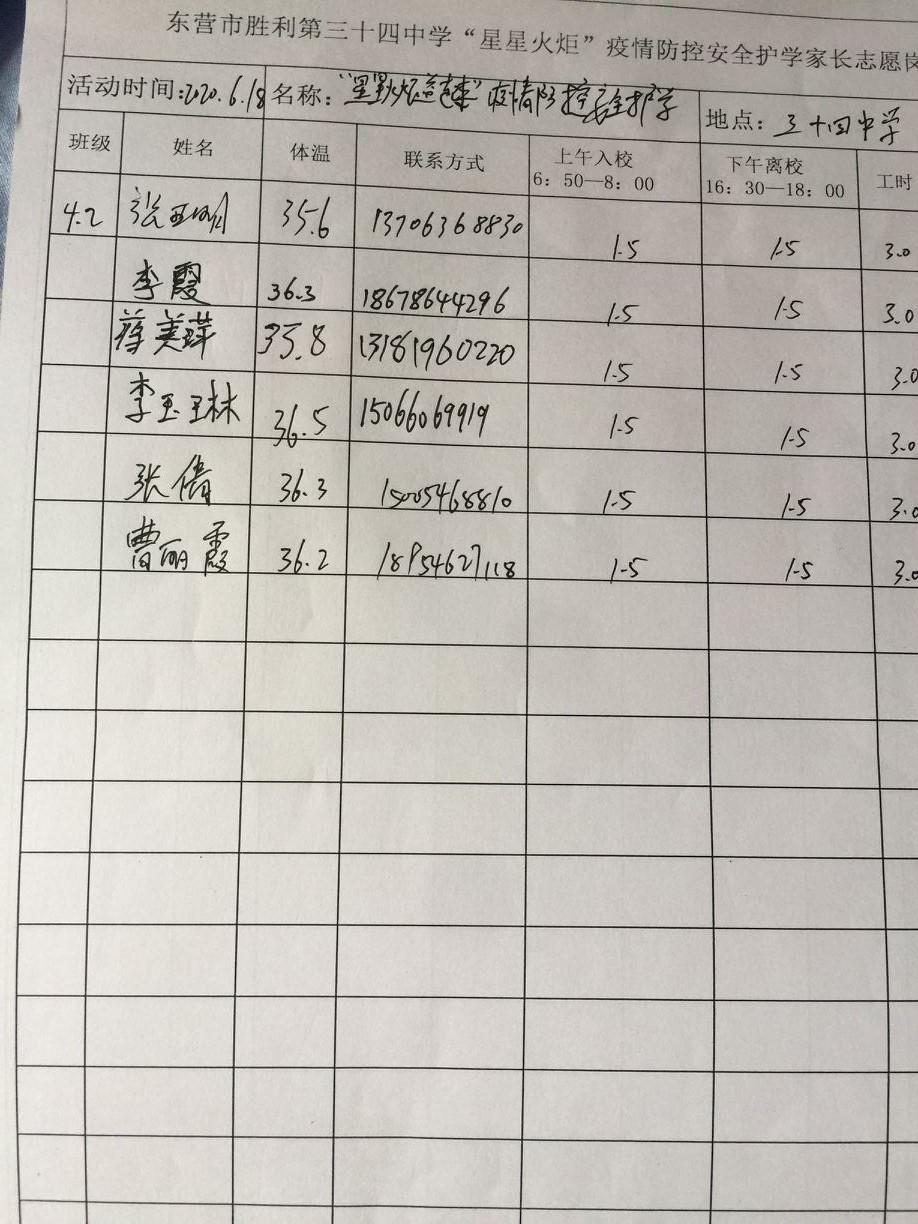 东营市胜利第三十四中学“星星火炬”疫情防控安全护学家长志愿岗
活动时间:2020.6.18 名称: “星星火炬 疫情防控安全护学 地点: 三十四中学
班级 姓名 体温 联系方式 上午入校 6:50—8:00 下午离校 16:30—18:00 工时
4.2 张亚明 35.6 13706368830 1.5 1.5 3.0
李霞 36.3 18678644296 1.5 1.5 3.0
蒋美萍 35.8 13181960220 1.5 1.5 3.0
李玉琳 36.5 15066069919 1.5 1.5 3.0
张倩 36.3 15005468810 1.5 1.5 3.0
曹丽霞 36.2 18954627118 1.5 1.5 3.0